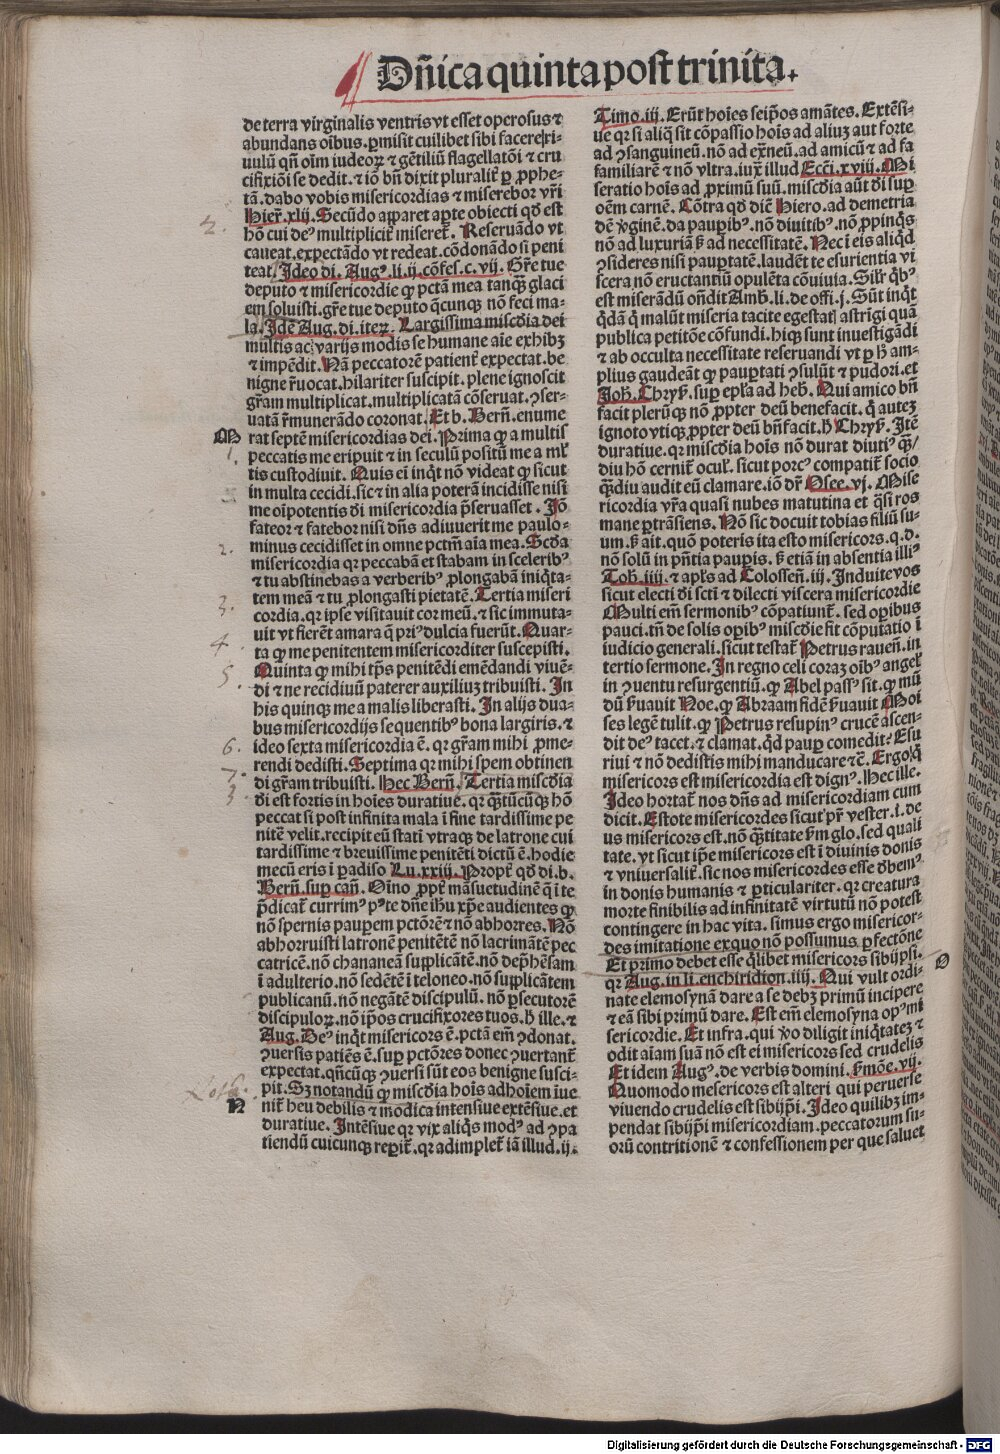 Dn̄ica quinta post trinita.
de terra virginalis ventris vt esset operosus ⁊
abundans oībus. ꝑmisit cuilibet sibi facere ri-
uulū qn̄ oīm iudeoꝝ ⁊ gētiliū flagellatōi ⁊ cru
cifixiōi se dedit. ⁊ iō bn̄ dixit pluralit̓ ꝑ ꝓphe-
tā. dabo vobis misericordias ⁊ miserebor vr̄i
Hier̓. xlij. Secūdo apparet aꝑte obiecti qd̓ est
hō cui deꝰ multiplicit̓ miseret̓. Reseruādo vt
caueat. expectādo vt redeat. cōdonādo si peni
teat. Ideo di. Augꝰ. li. ij. cōfes. c. vij. Gr̄e tue
deputo ⁊ misericordie qꝫ pctā mea tanqꝫ glaci
em soluisti. gr̄e tue deputo q̄cunqꝫ nō feci ma-
la. Idē Aug. di. iteꝝ. Largissima miscd̓ia dei
multis ac varijs modis se humane aīe exhibꝫ
⁊ impēdit. Nā peccatorē patient̓ expectat. be
nigne r̄uocat. hilariter suscipit. plene ignoscit
gr̄am multiplicat. multiplicatā cōseruat. ꝯser-
uatā r̄munerādo coronat. Et b. Bern̄. enume
M rat septē misericordias dei. Prima qꝫ a multis
1. peccatis me eripuit ⁊ in seculū positū me a ml̓
tis custodiuit. Quis ei inqͥt nō videat qꝫ sicut
in multa cecidi. sic ⁊ in alia poterā incidisse nisi
me oīpotentis di misericordia p̄seruasset. Iō
fateor ⁊ fatebor nisi dn̄s adiuuerit me paulo-
2. minus cecidisset in omne pctm̄ aīa mea. Scd̓a
misericordia qꝛ peccabā et stabam in sceleribꝰ
⁊ tu abstinebas a verberibꝰ ꝓlongabā iniqͥta-
3. tem meā ⁊ tu ꝓlongasti pietatē. Tertia miseri
cordia. qꝛ ipse visitauit cor meū. ⁊ sic immuta-
uit vt fierēt amara q̄ priꝰ dulcia fuerūt. Quar-
4. ta qꝫ me penitentem misericorditer suscepisti.
5. Quinta qꝫ mihi tp̄s penitēdi emēdandi viuē-
di ⁊ ne recidiuū paterer auxiliuꝫ tribuisti. In
his quinqꝫ me a malis liberasti. In alijs dua-
bus misericordijs sequentibꝰ bona largiris. ⁊
6. ideo sexta misericordia ē. qꝛ gr̄am mihi ꝓme-
rendi dedisti. Septima qꝛ mihi spem obtinen
7. di gr̄am tribuisti. Hec Bern̄. Tertia miscd̓ia
3 di est fortis in hoīes duratiue. qꝛ qͣ̄tūcūqꝫ hō
peccat si post infinita mala i fine tardissime pe
nitē velit. recipit eū stati vtraqꝫ de latrone cui
tardissime ⁊ breuissime penitēti dictū ē. hodie
mecū eris i paradiso Lu. xxiij. Propt̓ qd̓ di. b.
Bern̄. suꝑ can̄. Oīno ꝓpt̓ māsuetudinē q̄ i te
p̄dicat̓ currimꝰ pꝰ te dn̄e ihū xp̄e audientes qꝫ
nō spernis pauꝑem pctōrē ⁊ nō abhorres. Nō
abhorruisti latronē penitētē nō lacrimātē pec
catricē. nō chananeā supplicātē. nō dep̄hēsam
i adulterio. nō sedētē i teloneo. nō supplicātem
publicanū. nō negātē discipulū. nō ꝑsecutorē
discipuloꝝ. nō ip̄os crucifixores tuos. h̓ ille. ⁊
Aug. Deꝰ inqͥt misericors ē. pctā em̄ ꝯdonat.
ꝯuersis patiēs ē. suꝑ pctōres donec ꝯuertant̓
expectat. qn̄cūqꝫ ꝯuersi sūt eos benigne susci-
pit. Sꝫ notandū qꝫ miscd̓ia hoīs ad hoīem iue
N nit̓ heu debilis ⁊ modica intensiue extēsiue. et
duratiue. Intēsiue qꝛ vix aliqͥs modꝰ ad ꝯpa
tiendū cuicunqꝫ reꝑit̓. qꝛ adimplet̓ iā illud. ij.
Timo. iij. Erūt hoīes seip̄os amātes. Extēsi-
ue qꝛ si aliqͣ sit cōpassio hoīs ad aliuꝫ aut forte
ad ꝯsanguineū. nō ad ex̄neū. ad amicū ⁊ ad fa
familiarē ⁊ nō vltra. iux̄ illud Ecci. xviij. Mi
seratio hoīs ad ꝓximū suū. miscd̓ia aūt di suꝑ
oēm carnē. Cōtra qd̓ dīc̄ Hiero. ad demetria
dē ꝟginē. da pauꝑibꝰ. nō diuitibꝰ. nō ꝓpinqͥs
nō ad luxuriā s̓ ad necessitatē. Nec i eis aliqͥd
ꝯsideres nisi pauꝑtatē. laudēt te esurientia vi
scera nō eructantiū opulēta cōuiuia. Silr̓ qͥbꝰ
est miserādū on̄dit Amb̓. li. de offi. j. Sūt inqͥt
qͥdā q̄ malūt miseria tacite egestatꝭ astrīgi quā
publica petitōe cōfundi. hiqꝫ sunt inuestigādi
⁊ ab occulta necessitate reseruandi vt ꝑ h̓ am-
plius gaudeāt qꝫ pauꝑtati ꝯsulūt ⁊ pudori. et
Joh̓. Chrys̓. suꝑ ep̄la ad heb̓. Qui amico bn̄
facit plerūqꝫ nō ꝓpter deū benefacit. q̄ auteꝫ
ignoto vtiqꝫ ꝓpter deū bn̄facit. h̓ Chrys̓. Itē
duratiue. qꝛ miscd̓ia hoīs nō durat diutiꝰ qͣꝫ/
diu hō cernit̓ ocul̓. sicut porcꝰ compatit̓ socio
qͣꝫdiu audit eū clamare. iō dr̄ Osee. vj. Mise
ricordia vr̄a quasi nubes matutina et q̄si ros
mane ꝑtrāsiens. Nō sic docuit tobias filiū su-
um. s̓ ait. quō poteris ita esto misericors. q. d.
nō solū in pn̄tia pauꝑis. s̓ etiā in absentia illiꝰ
Tob̓. iiij. ⁊ apl̓s ad Colossen̄. iij. Induite vos
sicut electi di sctī ⁊ dilecti viscera misericordie
Multi em̄ sermonibꝰ cōpatiunt̓. sed oꝑibus
pauci. tn̄ de solis oꝑibꝰ miscd̓ie fit cōputatio i
iudicio generali. sicut testat̓ Petrus rauen̄. in
tertio sermone. In regno celi coraꝫ oībꝰ angel̓
in ꝯuentu resurgentiū. qꝫ Abel passꝰ sit. qꝫ mū
dū s̓uauit Noe. qꝫ Abraam fidē s̓uauit Moi
ses legē tulit. qꝫ Petrus resupinꝰ crucē ascen-
dit deꝰ tacet. ⁊ clamat. qͥd pauꝑ comedit? Esu
riui ⁊ nō dedistis mihi manducare ⁊c̄. Ergo q̄
misericors est misericordia est dignꝰ. Hec ille.
Ideo hortat̓ nos dn̄s ad misericordiam cum
dicit. Estote misericordes sicut pr̄ vester. i. de
us misericors est. nō qͣ̄titate s̓m glo. sed quali
tate. vt sicut ip̄e misericors est i diuinis donis
⁊ vniuersalit̓. sic nos misericordes esse db̓emꝰ
in donis humanis ⁊ ꝑticulariter. qꝛ creatura
morte finibilis ad infinitatē virtutū nō potest
contingere in hac vita. simus ergo misericor-
des imitatione ex quo nō possumus ꝑfectōne
Et primo debet esse q̄libet misericors sibijpsi. O
qꝛ Aug. in li. enchiridion. iiij. Qui vult ordi-
nate elemosynā dare a se debꝫ primū incipere
⁊ eā sibi primū dare. Est em̄ elemosyna opꝰ mi
sericordie. Et infra. qui ꝟo diligit iniqͥtateꝫ ⁊
odit aīam suā nō est ei misericors sed crudelis
Et idem Augꝰ. de verbis domini. s̓mōe. vij.
Quomodo mesericors est alteri qui peruerse
viuendo crudelis est sibijp̄i. Ideo quilibꝫ im-
pendat sibijp̄i misericordiam. peccatorum su-
orū contritionē ⁊ confessionem per que saluet̓
Digitalisierung gefördert durch die Deutsche Forschungsgemeinschaft - DFG